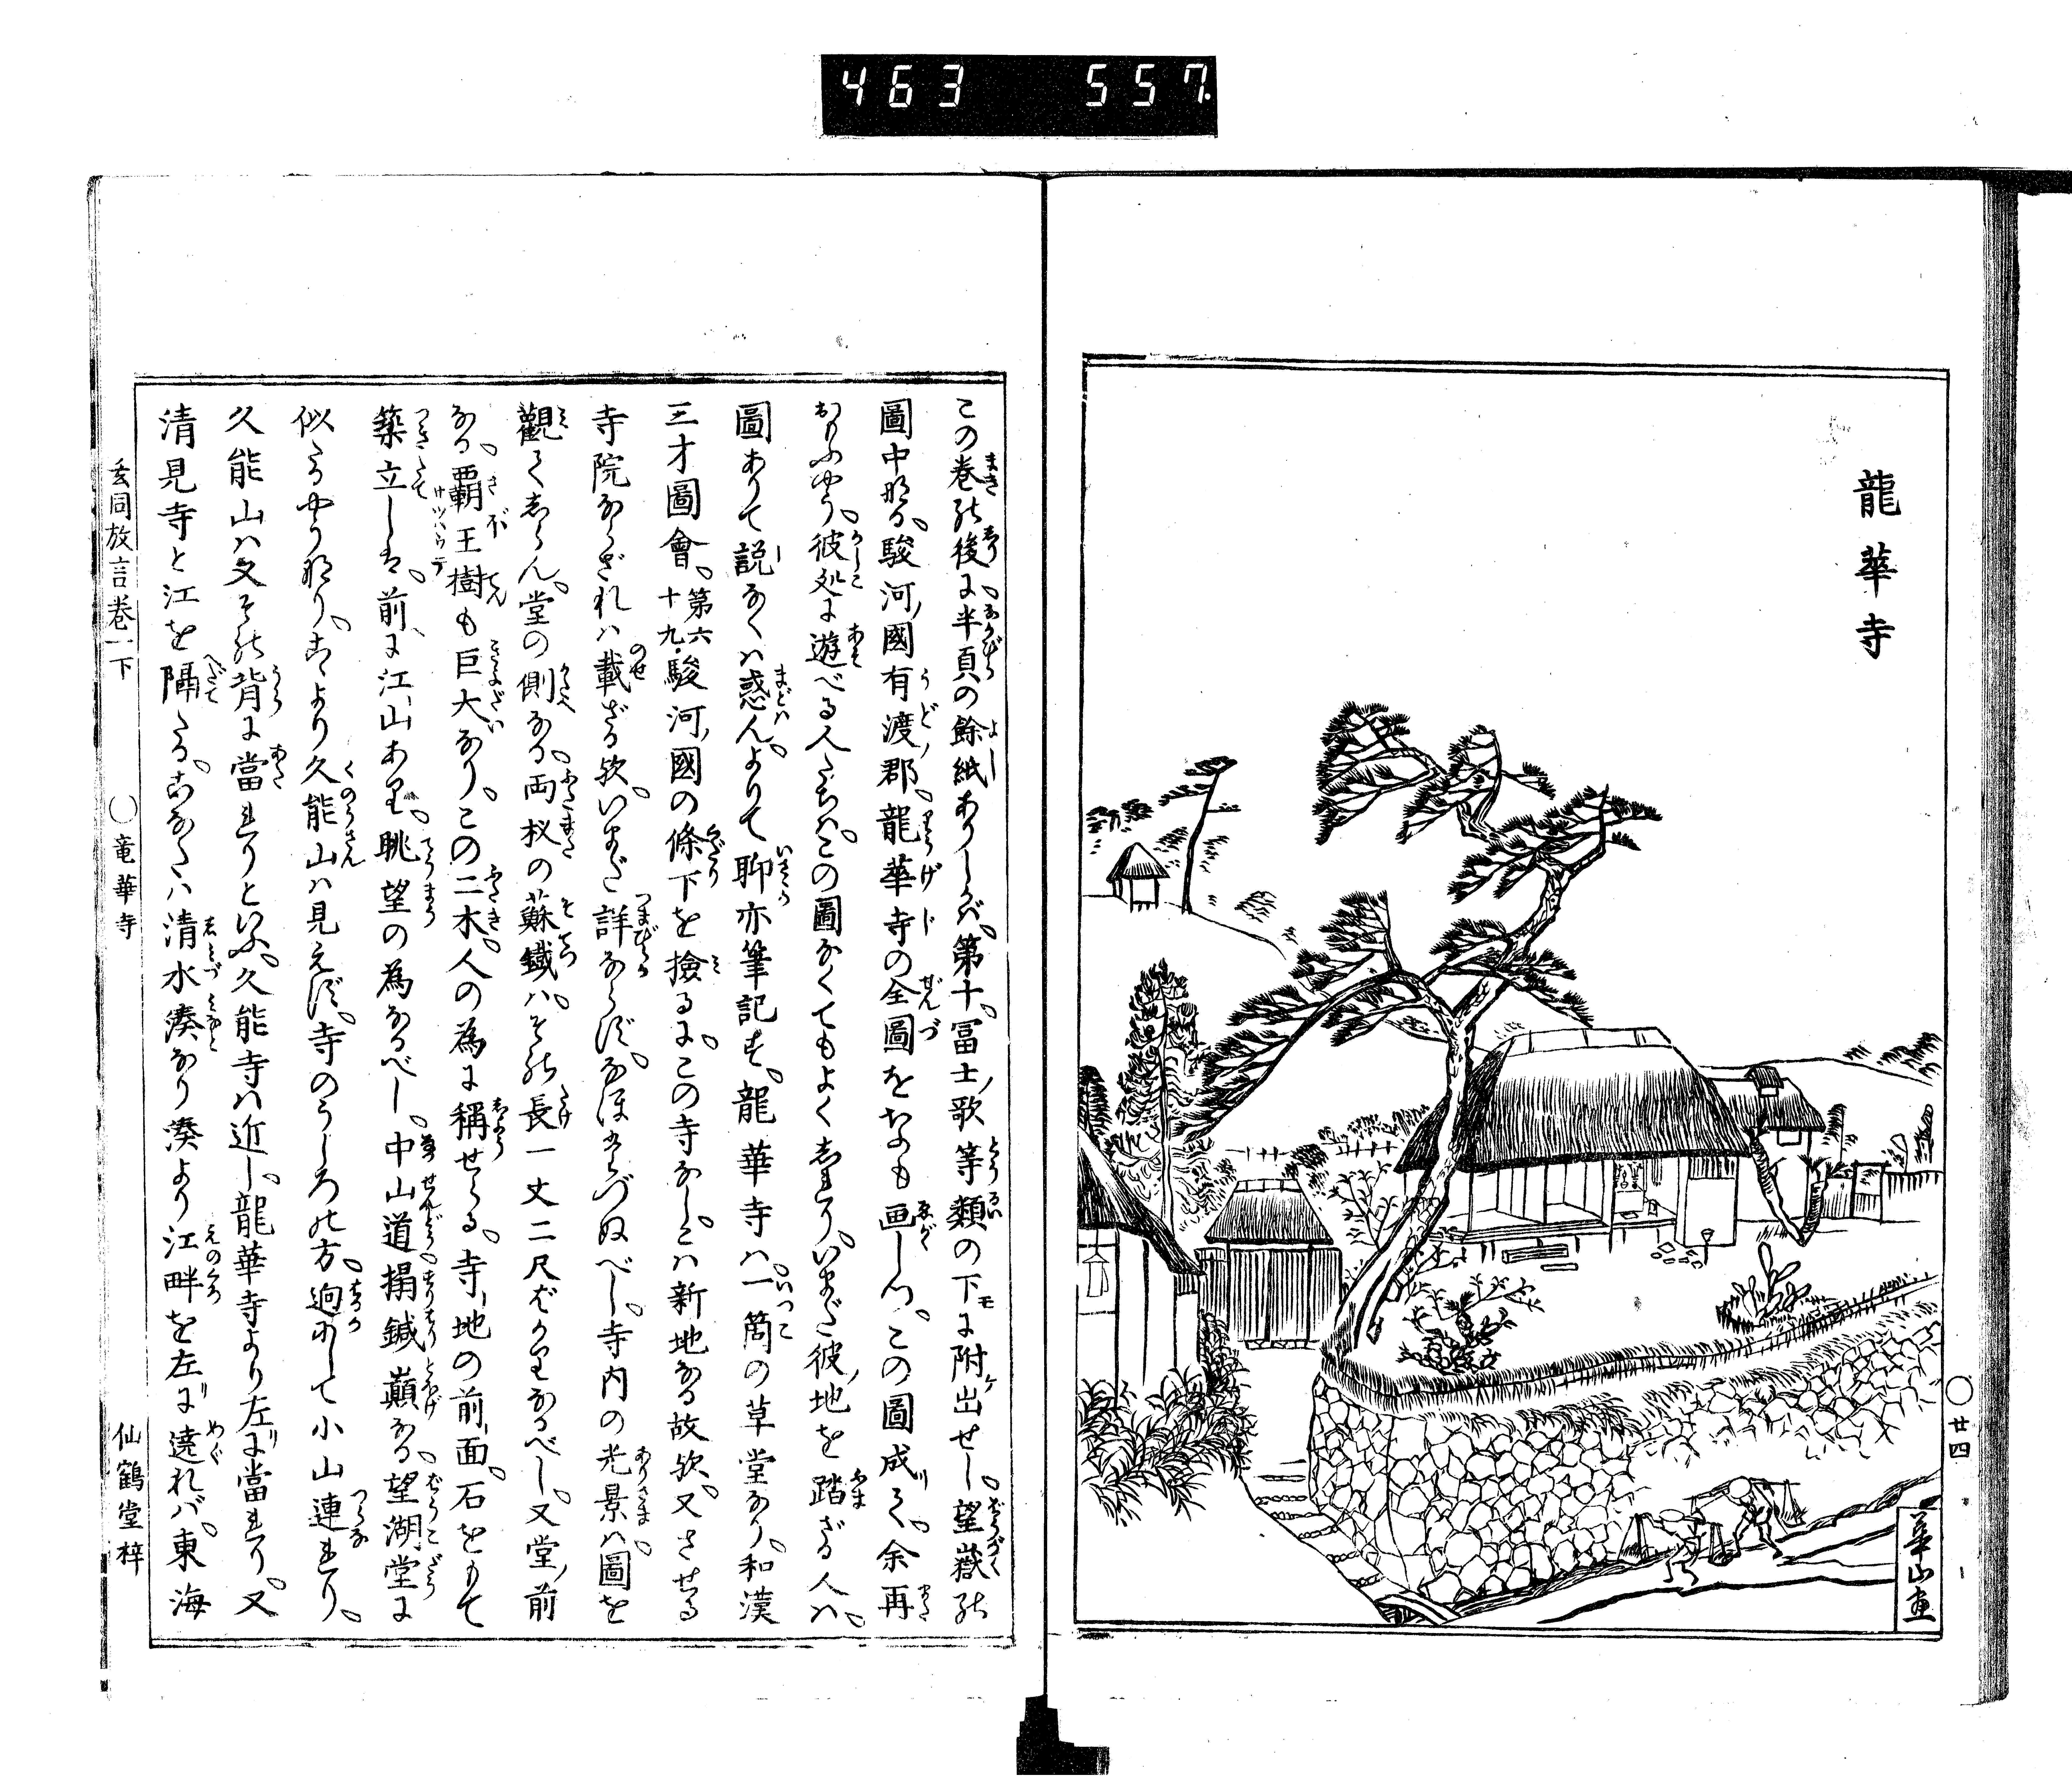 463 557
龍華寺
廿四
華山画
この巻の後に半頁の餘紙ありしかバ、第十、冨士歌等類の下に附出せし、望嶽の
圖中なる、駿河ノ國有渡ノ郡、龍華寺の全圖をなも画しつ、この圖成りて、余再
おもふやう、彼処に遊べる人たちは、この圖なくてもよくしれり、いまだ彼ノ地を踏ざる人ハ、
圖ありて説なくハ惑ん、よりて聊亦筆記す、龍華寺ハ、一箇の草堂なり、和漢
三才圖會、第六十九、駿河ノ國の條下を撿るに、この寺なし、こハ新地なる故歟、又させる
寺院ならざれハ載ざる歟、いまだ詳ならず、なほたづぬべし、寺内の光景ハ、圖を
觀てしらん、堂の側なる、両杈の蘇鐵ハ、その長一丈二尺ばかりなるべし、又堂ノ前
なる、覇王樹も巨大なり、この二木、人の為に稱せらる、寺ノ地の前面、石をもて
築立しは、前に江山あれば、眺望の為なるべし、中山道、摺鍼巓なる、望湖堂に
似たるやうなり、こゝより久能山ハ見えず、寺のうしろの方、迥かにして小山連れり、
久能山ハ又その背に當れりといふ、久能寺ハ近し、龍華寺より左リに當れり、又
清見寺と江を隔たる、こなたハ清水湊なり湊より江畔を左リに遶れバ、東海
玄同放言巻一下 ○竜華寺 仙鶴堂梓